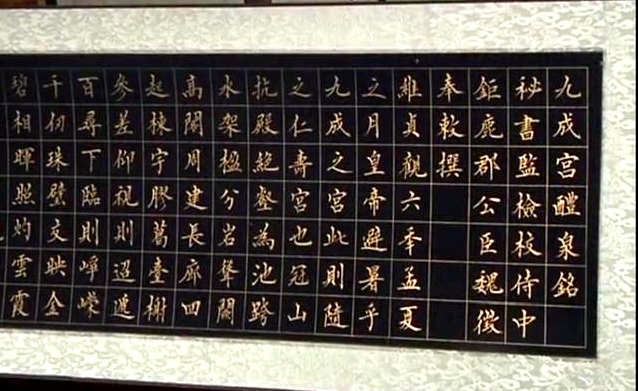 九成宮醴泉銘
秘書監檢校侍中
鉅鹿郡公臣魏徵
奉敕撰
維貞觀六年孟夏
之月皇帝避暑乎
九成之宮此則隨
之仁壽宮也冠山
抗殿絕壑為池跨
水架楹分岩聳闕
高閣周建長廊四
起棟宇膠葛臺榭
參差仰視則迢遞
百尋下臨則崢嶸
千仞珠璧交映金
碧相暉照灼雲霞